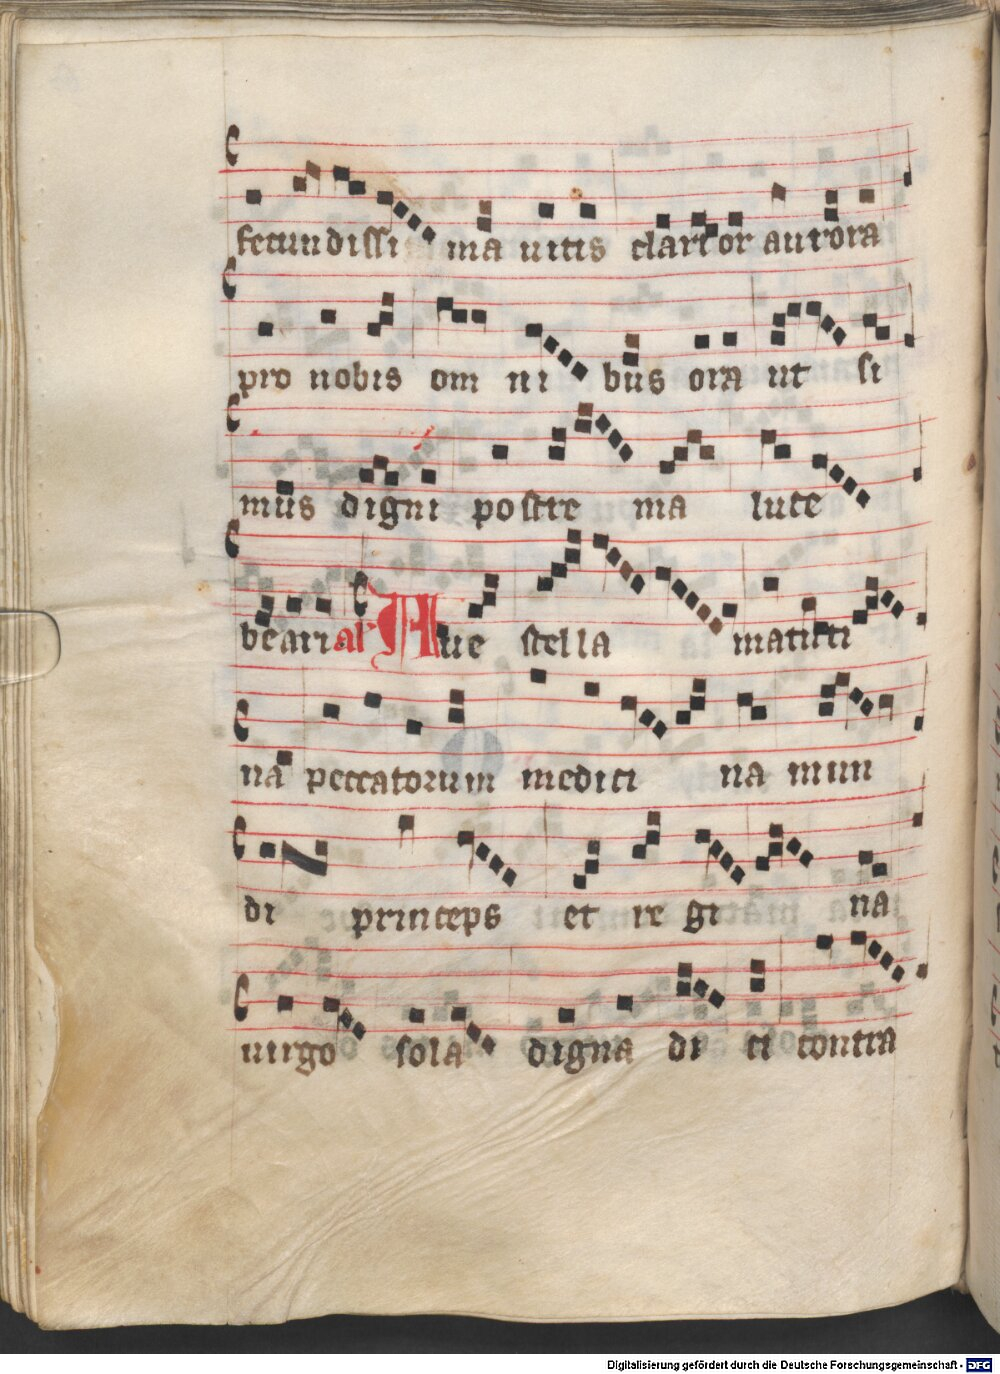 fecundissi ma uitis clarior aurora
pro nobis om ni bus ora ut si
mus digni postre ma luce
beari al' Aue stella matuti
na peccatorum medici na mun
di princeps et re gi na
uirgo sola digna di ci contra
Digitalisierung gefördert durch die Deutsche Forschungsgemeinschaft - DFG